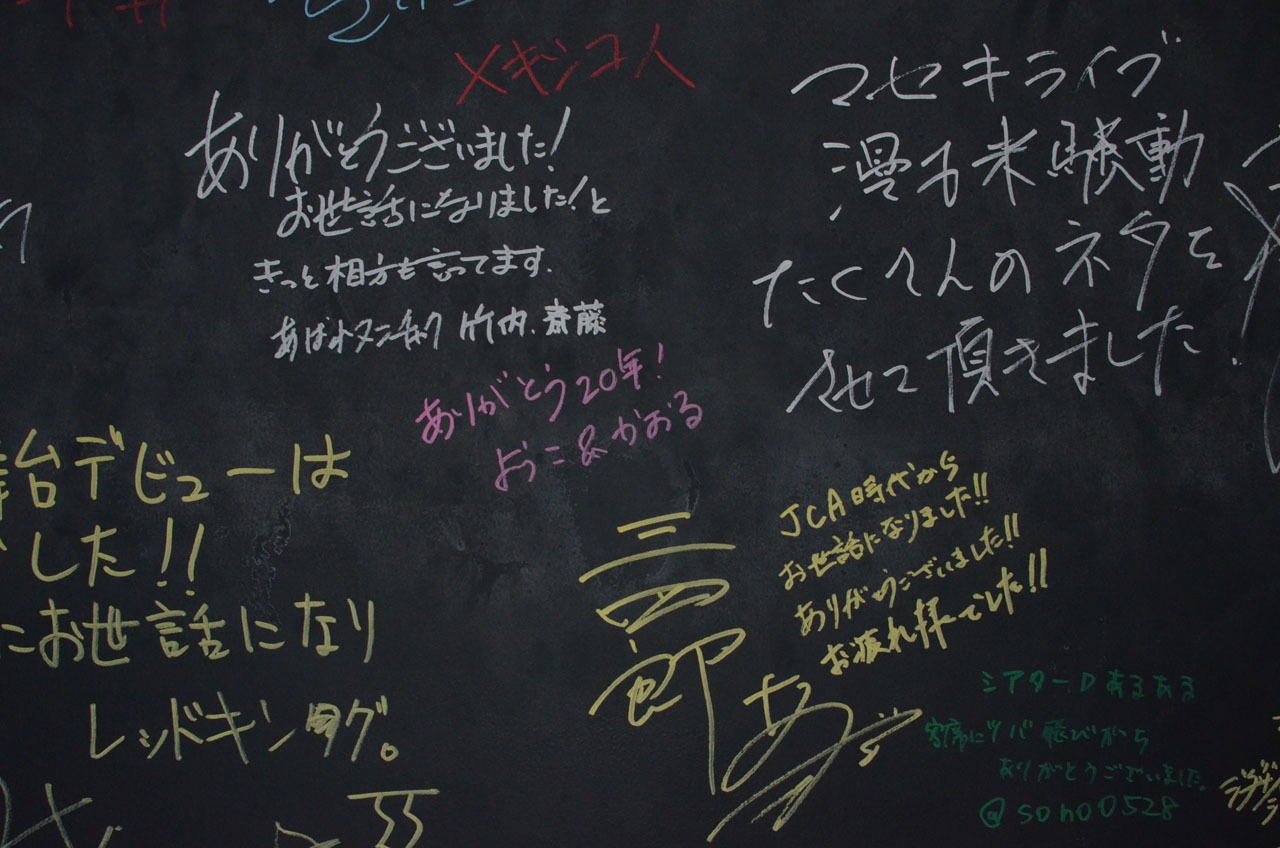 メキシコ人
ありがとうございました!
お世話になりました!と
きっと相方も言ってます.
竹内、斎藤
マセキライブ
漫才米騒動
たくさんのネタを
させて頂きました!
ありがとう20年!
ようこ&かおる
台デビューは
した!!
にお世話になり
レッドキング。
三四郎
JCA時代から
お世話になりました!!
ありがとうございました!!
お疲れ様でした!!
シアターDあるある
客席にツバ飛びがち
ありがとうございました。
@sono0528